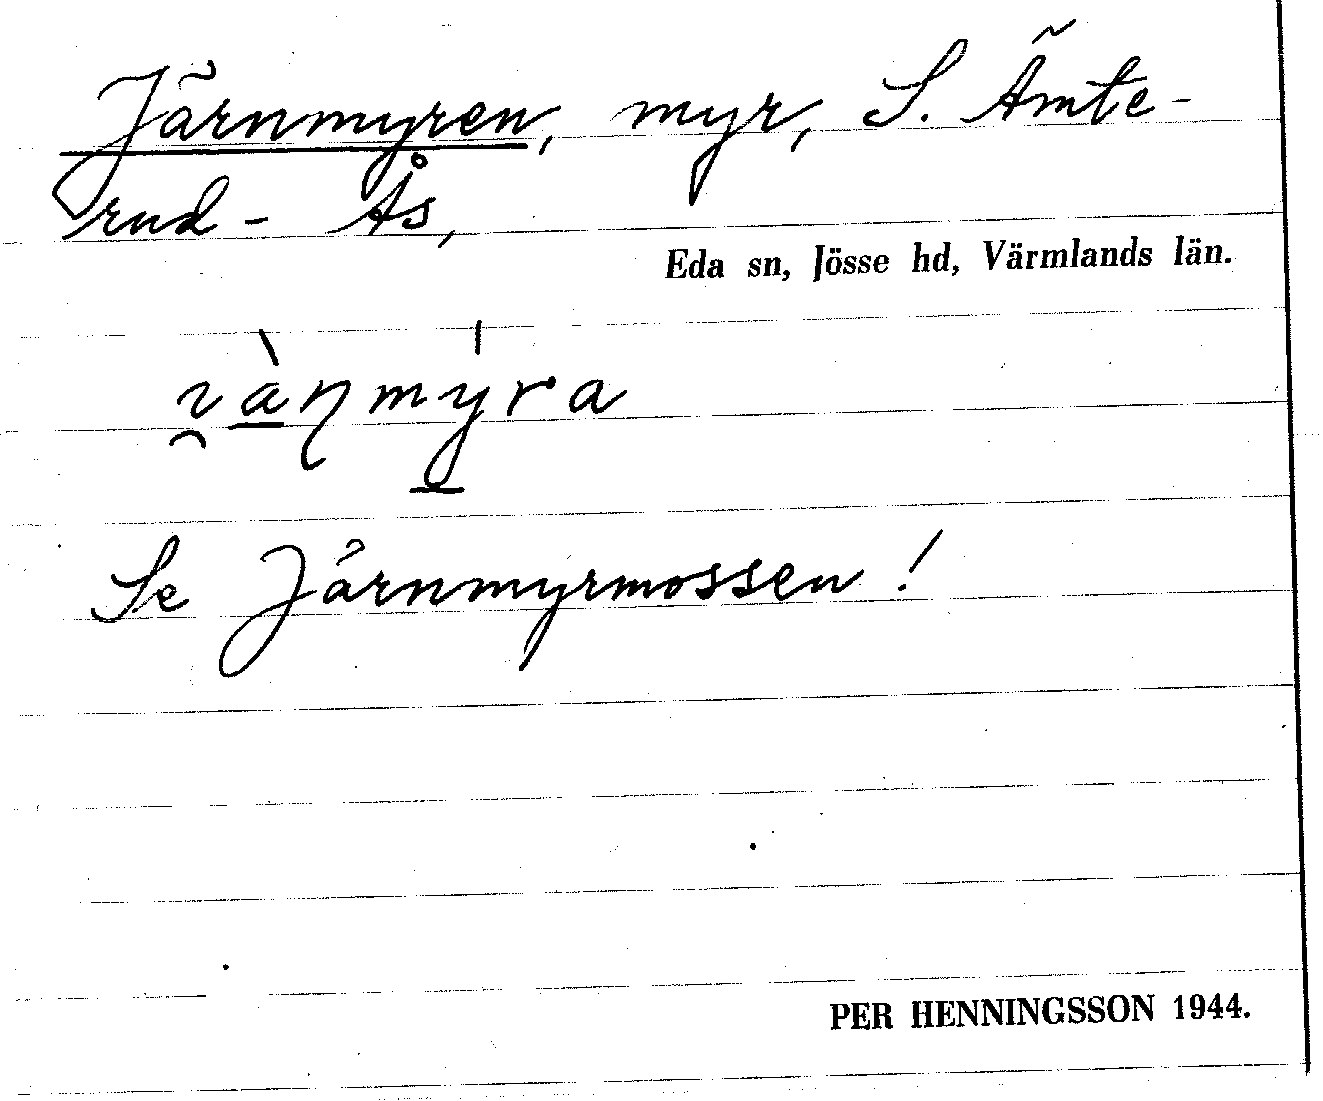 Järnmyren, myr, S. Ämte-
rud - Ås,
Eda sn, Jösse hd, Värmlands län.
Se Järnmyrmossen!
PER HENNINGSSON 1944.